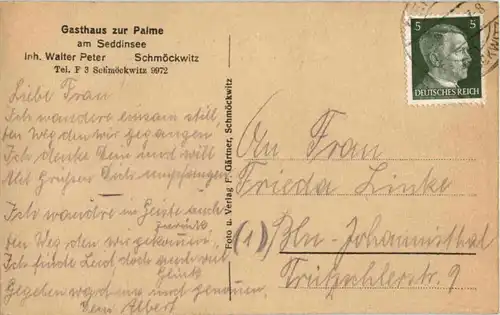 Gasthaus zur Palme
am Seddinsee
Inh. Walter Peter Schmöckwitz
Tel. F 3 Schmöckwitz 9972
Liebe Frau!
Ich wandere einsam still,
den Weg den wir gegangen
Ich denke Dein und will
Mit Grüßen Dich umpfangen
Ich wandre im Geiste auch
zurück
den Weg den wir gekommen,
Ich finde Leid doch auch viel
Glück
Gegeben ward uns und genommen.
Dein Albert
Foto u. Verlag F. Gärtner, Schmöckwitz
5 5
DEUTSCHES REICH
An Frau
Frieda Linke
(1) Bln-Johannisthal
Trützschlerstr. 9